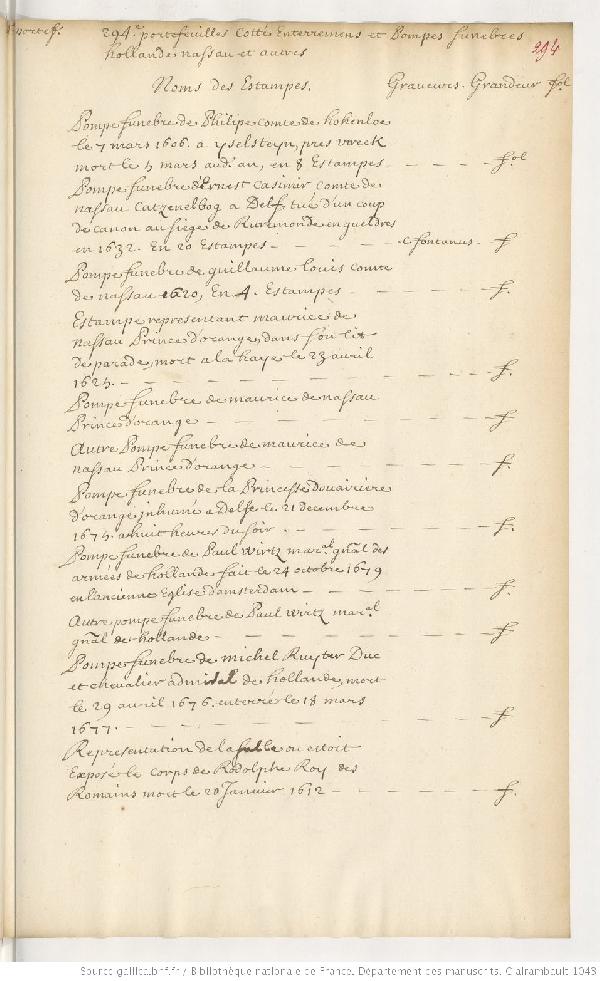 portef.
294.e portefeuilles Cotté Enterremens et Pompes funebres
hollande nassau et autres
294
Noms des Estampes. Graveurs. Grandeur fol
Pompe funebre de Philipe comte de hohenloe
le 7 mars 1606. a yselsteyn, pres vreeck
mort le 5 mars aud. an, en 8 Estampes - - - - fol
Pompe funebre d'Ernest Casimir comte de
nassau Catzenelbog a Delf, tué d'un coup
de canon au siege de Ruremonde en gueldres
en 1632. En 20 Estampes - - - - - C fontanus - f
Pompe funebre de guillaume louis comte
de nassau 1620, En 4. Estampes - - - - f.
Estampe representant maurice de
nassau Prince d'orange, dans son lit
de parade, mort a la haye le 23 avril
1625. - - - - - - - - f.
Pompe funebre de maurice de nassau
Prince d'orange - - - - - - - f.
Autre Pompe funebre de maurice de
nassau Prince d'orange - - - - - - f.
Pompe funebre de la Princesse Douairiere
d'orange, inhumé a Delfe le 21 decembre
1675. a huit heures du soir. - - - - - f.
Pompe funebre de Paul Wirtz mar.al gnal des
armées de hollande fait le 24 octobre 1679
en l'ancienne Eglise d'amsterdam - - - - - f.
Autre pompe funebre de Paul wirtz mar.al
gnal de hollande - - - - - - - f
Pompe funebre de michel Ruyter Duc
et chevalier admiral de hollande, mort
le 29 avril 1676. enterré le 18 mars
1677. - - - - - - - - f
Representation de la salle ou estoit
Exposé le corps de Rodolphe Roy des
Romains mort le 20 Janvier 1612 - - - - f.
Source gallica.bnf.fr / Bibliothèque nationale de France. Département des manuscrits. Clairambault 1043